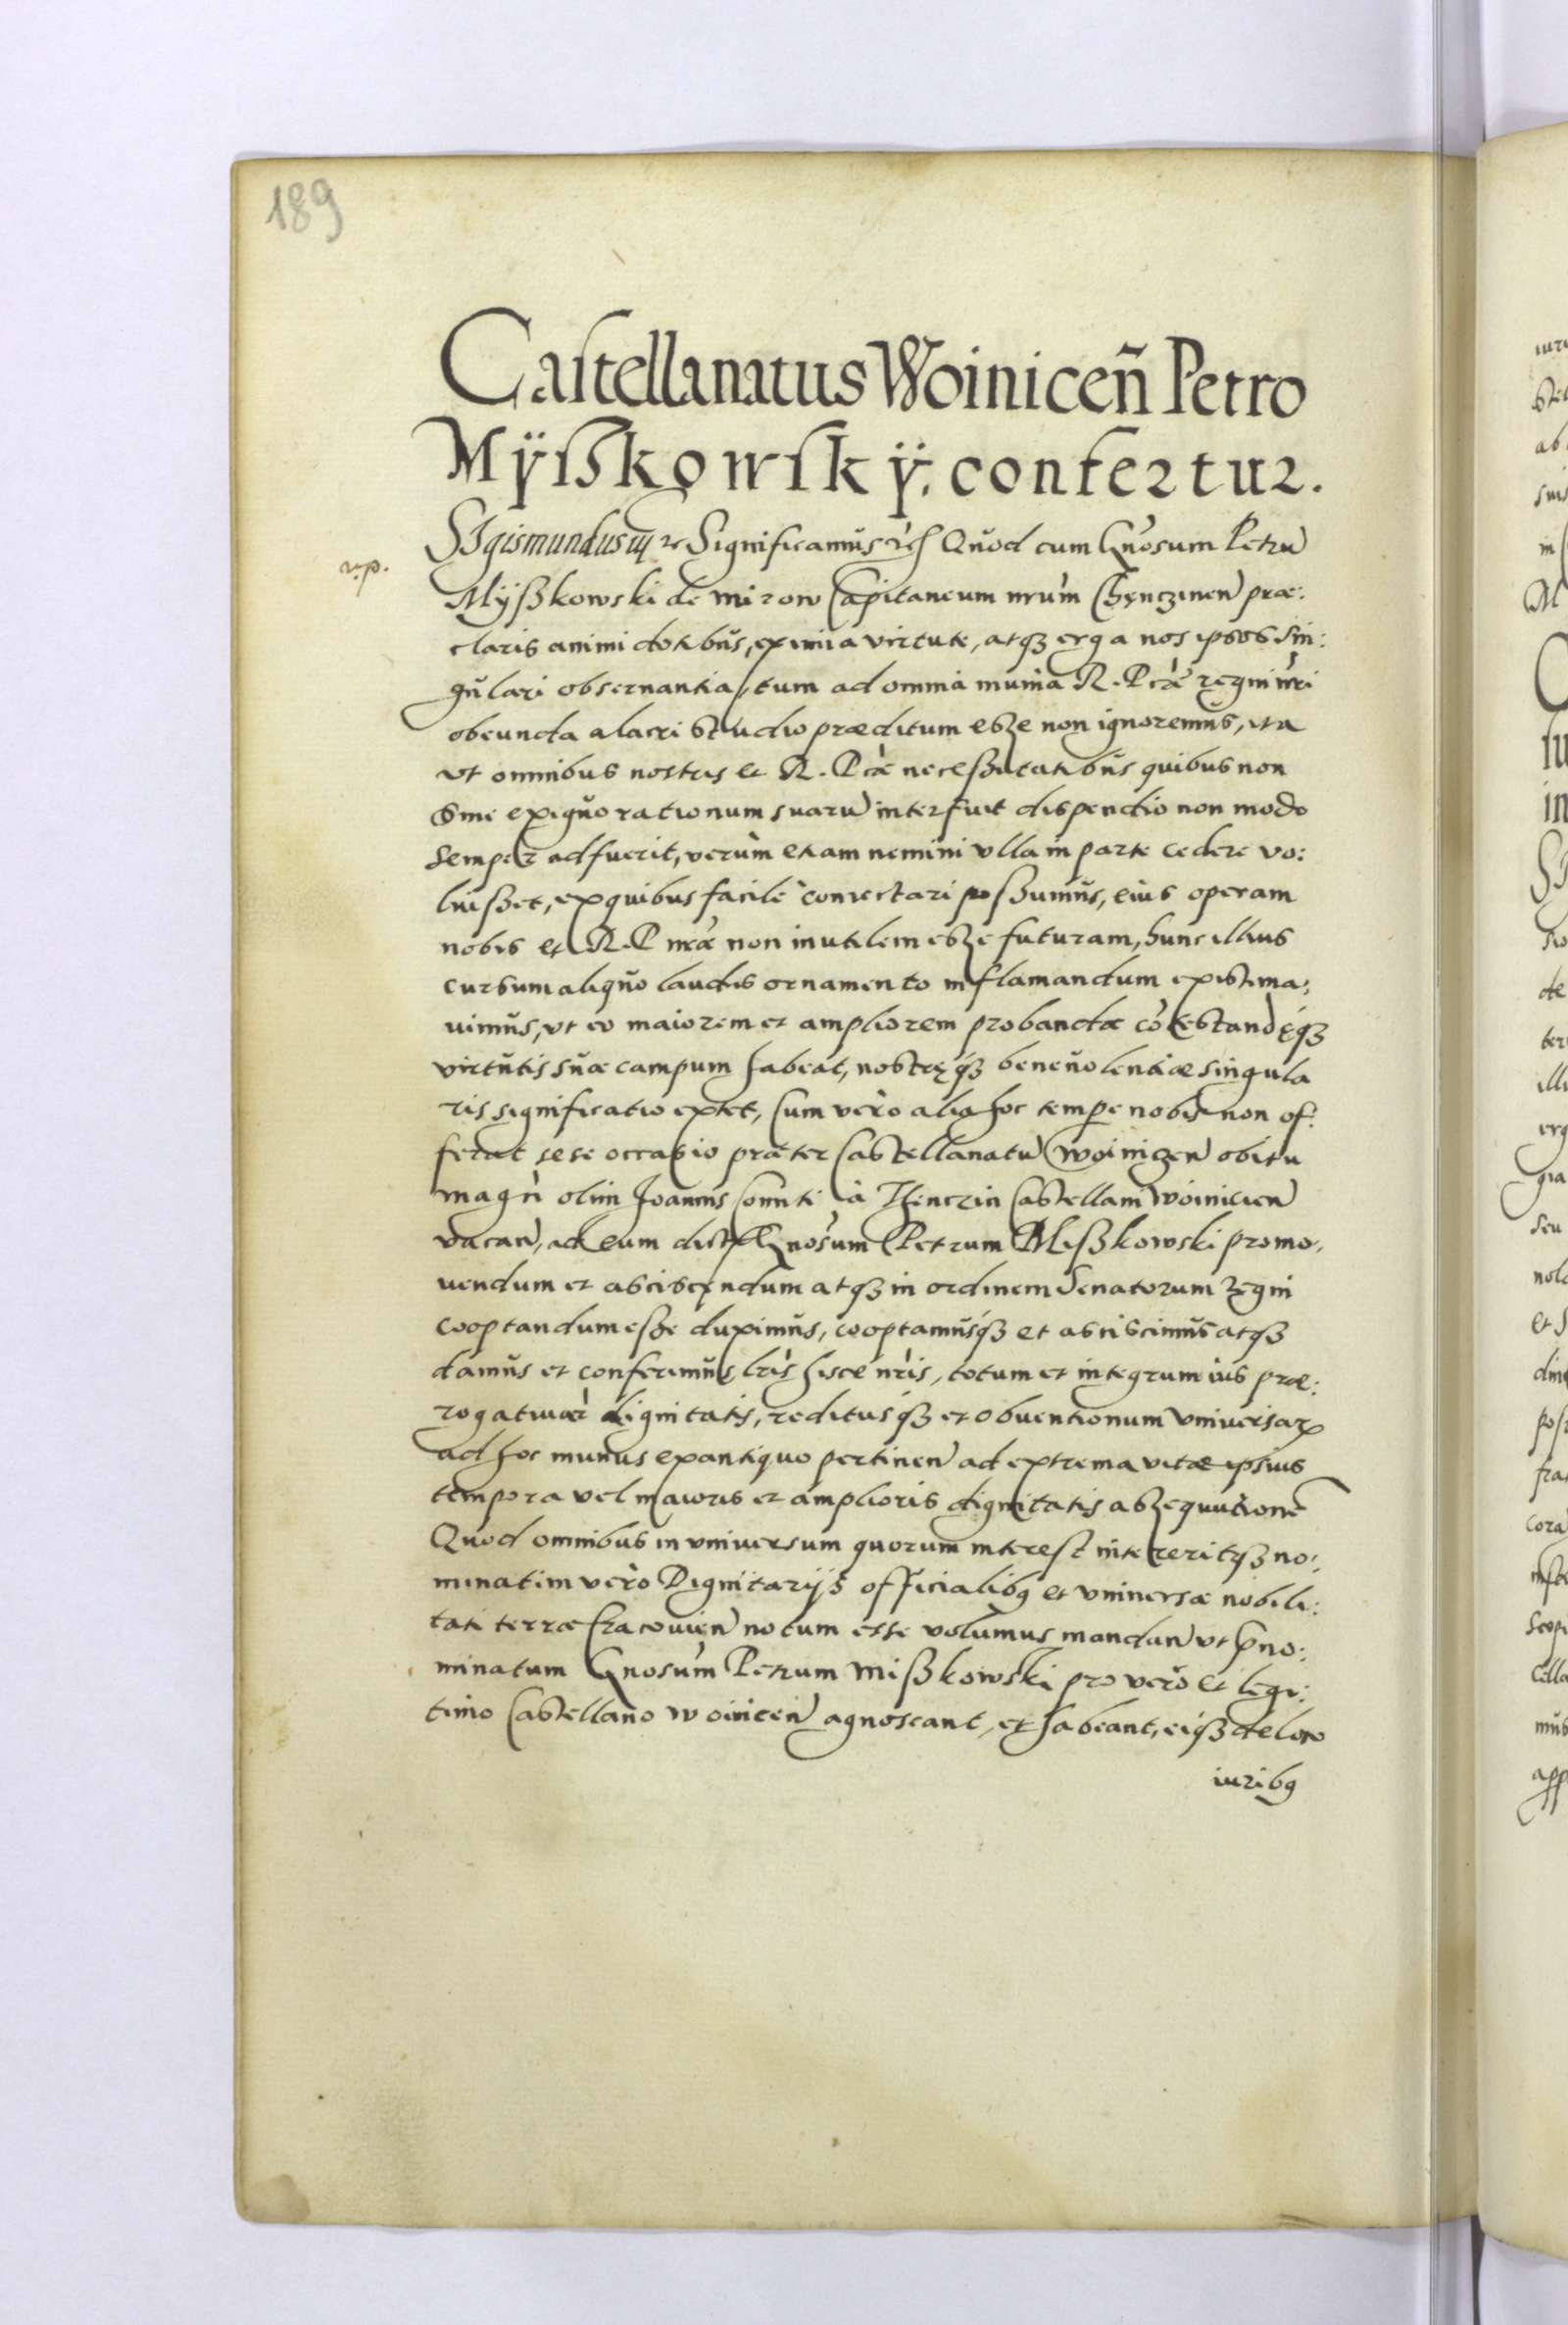 189
Castellanatus Woiniceñ Petro
Mÿßkowskÿ, confertur.
SIgismundus iij &c Significamus &c Quod cum Gnosum Petrũ
Mÿßkowski de mirow Capitaneum nrum Chęnczinen præ:
claris animi dotibus, eximia virtute, atqz erga nos ipsos sin:
gulari obseruantia, tum ad omnia munia R. P cæ regni nri
obeunda alacri studio præditum esze non ignoremus, ita
vt omnibus nostris et R. P cæ neceßitatibus quibus non
sine exiguo rationum suarũ interfuit dispendio non modo
semper adfuerit, verum etiam nemini vlla in parte cedere vo:
luißet, ex quibus facile coniectari poßumus, eius operam
nobis et R. P nræ non inutilem esze futuram, hunc illius
cursum aliquo laudis ornamento inflamandum existima:
uimus, vt eo maiorem et ampliorem probandæ cõtestandęqz
virtutis suæ campum habeat, nostręqz beneuolentiæ singula
ris significatio extet, Cum vero alia hoc tempe nobis non of:
ferat sese occasio præter Castellanatũ Woiniczen obitu
magci olim Joannis Comiti à Thenczin Castellani Woinicien
vacan, ad eum dict Gnosum Petrum Mißkowski promo,
uendum et asciscendum atqz in ordinem Senatorum regni
cooptandum eße duximus, cooptamusqz et asciscimus atqz
damus et conferimus lris hisce nris, totum et integrum ius præ:
rogatiuar dignitatis, reditusqz et obuentionum vniuersarum
ad hoc munus ex antiquo pertinen ad extrema vitæ ipsius
tempora vel maioris et amplioris dignitatis aszequutionẽ
Quod omnibus in vniuersum quorum interest intereritqz no:
minatim vero Dignitarijs officialibq et vniuersæ nobili:
tati terræ Cracouien notum esse volumus mandan vt pno:
minatum Gnosum Petrum Mißkowski pro vero et legi:
timo Castellano Woinicen agnoscant, et habeant, eiqz de loco
iuribq